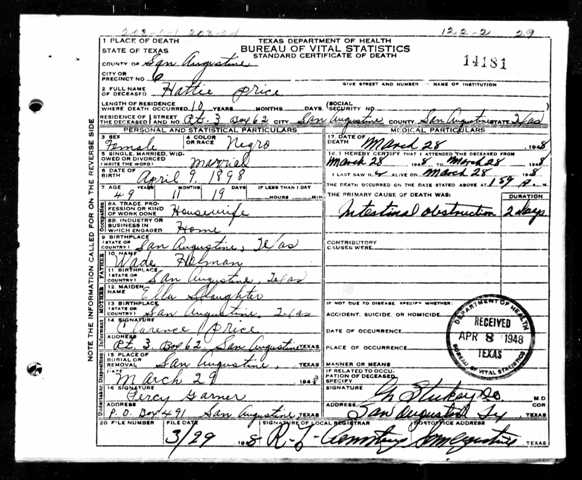 12-2-2 29
1 PLACE OF DEATH
STATE OF TEXAS
TEXAS DEPARTMENT OF HEALTH
BUREAU OF VITAL STATISTICS
STANDARD CERTIFICATE OF DEATH
14181
COUNTY OF San Augustine
CITY OR
PRECINCT NO. 6
GIVE STREET AND NUMBER OR NAME OF INSTITUTION
2 FULL NAME
OF DECEASED Hattie Price
LENGTH OF RESIDENCE
WHERE DEATH OCCURRED 10 YEARS MONTHS DAYS
(SOCIAL
SECURITY NO.
RESIDENCE OF
THE DECEASED STREET AND NO. Rt. 3 Box 62 CITY San Augustine COUNTY San Augustine STATE Texas
PERSONAL AND STATISTICAL PARTICULARS
MEDICAL PARTICULARS
3 SEX Female
4 COLOR OR RACE Negro
5 SINGLE, MARRIED, WIDOWED OR DIVORCED (WRITE THE WORD) Married
6 DATE OF BIRTH April 9 1898
7 AGE 49 YEARS 11 MONTHS 19 DAYS
IF LESS THAN 1 DAY
HOURS MIN.
8A. TRADE, PROFESSION OR KIND OF WORK DONE Housewife
8B. INDUSTRY OR BUSINESS IN WHICH ENGAGED Home
9 BIRTHPLACE (STATE OR COUNTRY) San Augustine, Texas
10 NAME Wade Holman
11 BIRTHPLACE (STATE OR COUNTRY) San Augustine, Texas
12 MAIDEN NAME Ella Slaughter
13 BIRTHPLACE (STATE OR COUNTRY) San Augustine, Texas
14 SIGNATURE Clarence Price
ADDRESS Rt. 3 Box 62 San Augustine TEXAS
15 PLACE OF BURIAL OR REMOVAL San Augustine, TEXAS
March 29 1948
16 SIGNATURE Percy Garner
ADDRESS P.O. Box 491 San Augustine, TEXAS
17 DATE OF DEATH March 28 1948
18 I HEREBY CERTIFY THAT I ATTENDED THE DECEASED FROM
March 28 1948 TO March 28 1948
I LAST SAW ALIVE ON March 28 1948
THE DEATH OCCURRED ON THE DATE STATED ABOVE AT 1:59 M.
THE PRIMARY CAUSE OF DEATH WAS:
DURATION
Intestinal obstruction 2 days
CONTRIBUTORY CAUSES WERE:
IF NOT DUE TO DISEASE, SPECIFY WHETHER:
ACCIDENT, SUICIDE, OR HOMICIDE
DATE OF OCCURRENCE
PLACE OF OCCURRENCE
MANNER OR MEANS
IF RELATED TO OCCUPATION OF DECEASED, SPECIFY
M D
COR
ADDRESS San Augustine TEXAS
DEPARTMENT OF HEALTH
RECEIVED
APR 8 1948
TEXAS
BUREAU OF VITAL STATISTICS
20 FILE NUMBER
FILE DATE 3/29 1948
SIGNATURE OF LOCAL REGISTRAR
POSTOFFICE ADDRESS
TEXAS
NOTE THE INFORMATION CALLED FOR ON THE REVERSE SIDE